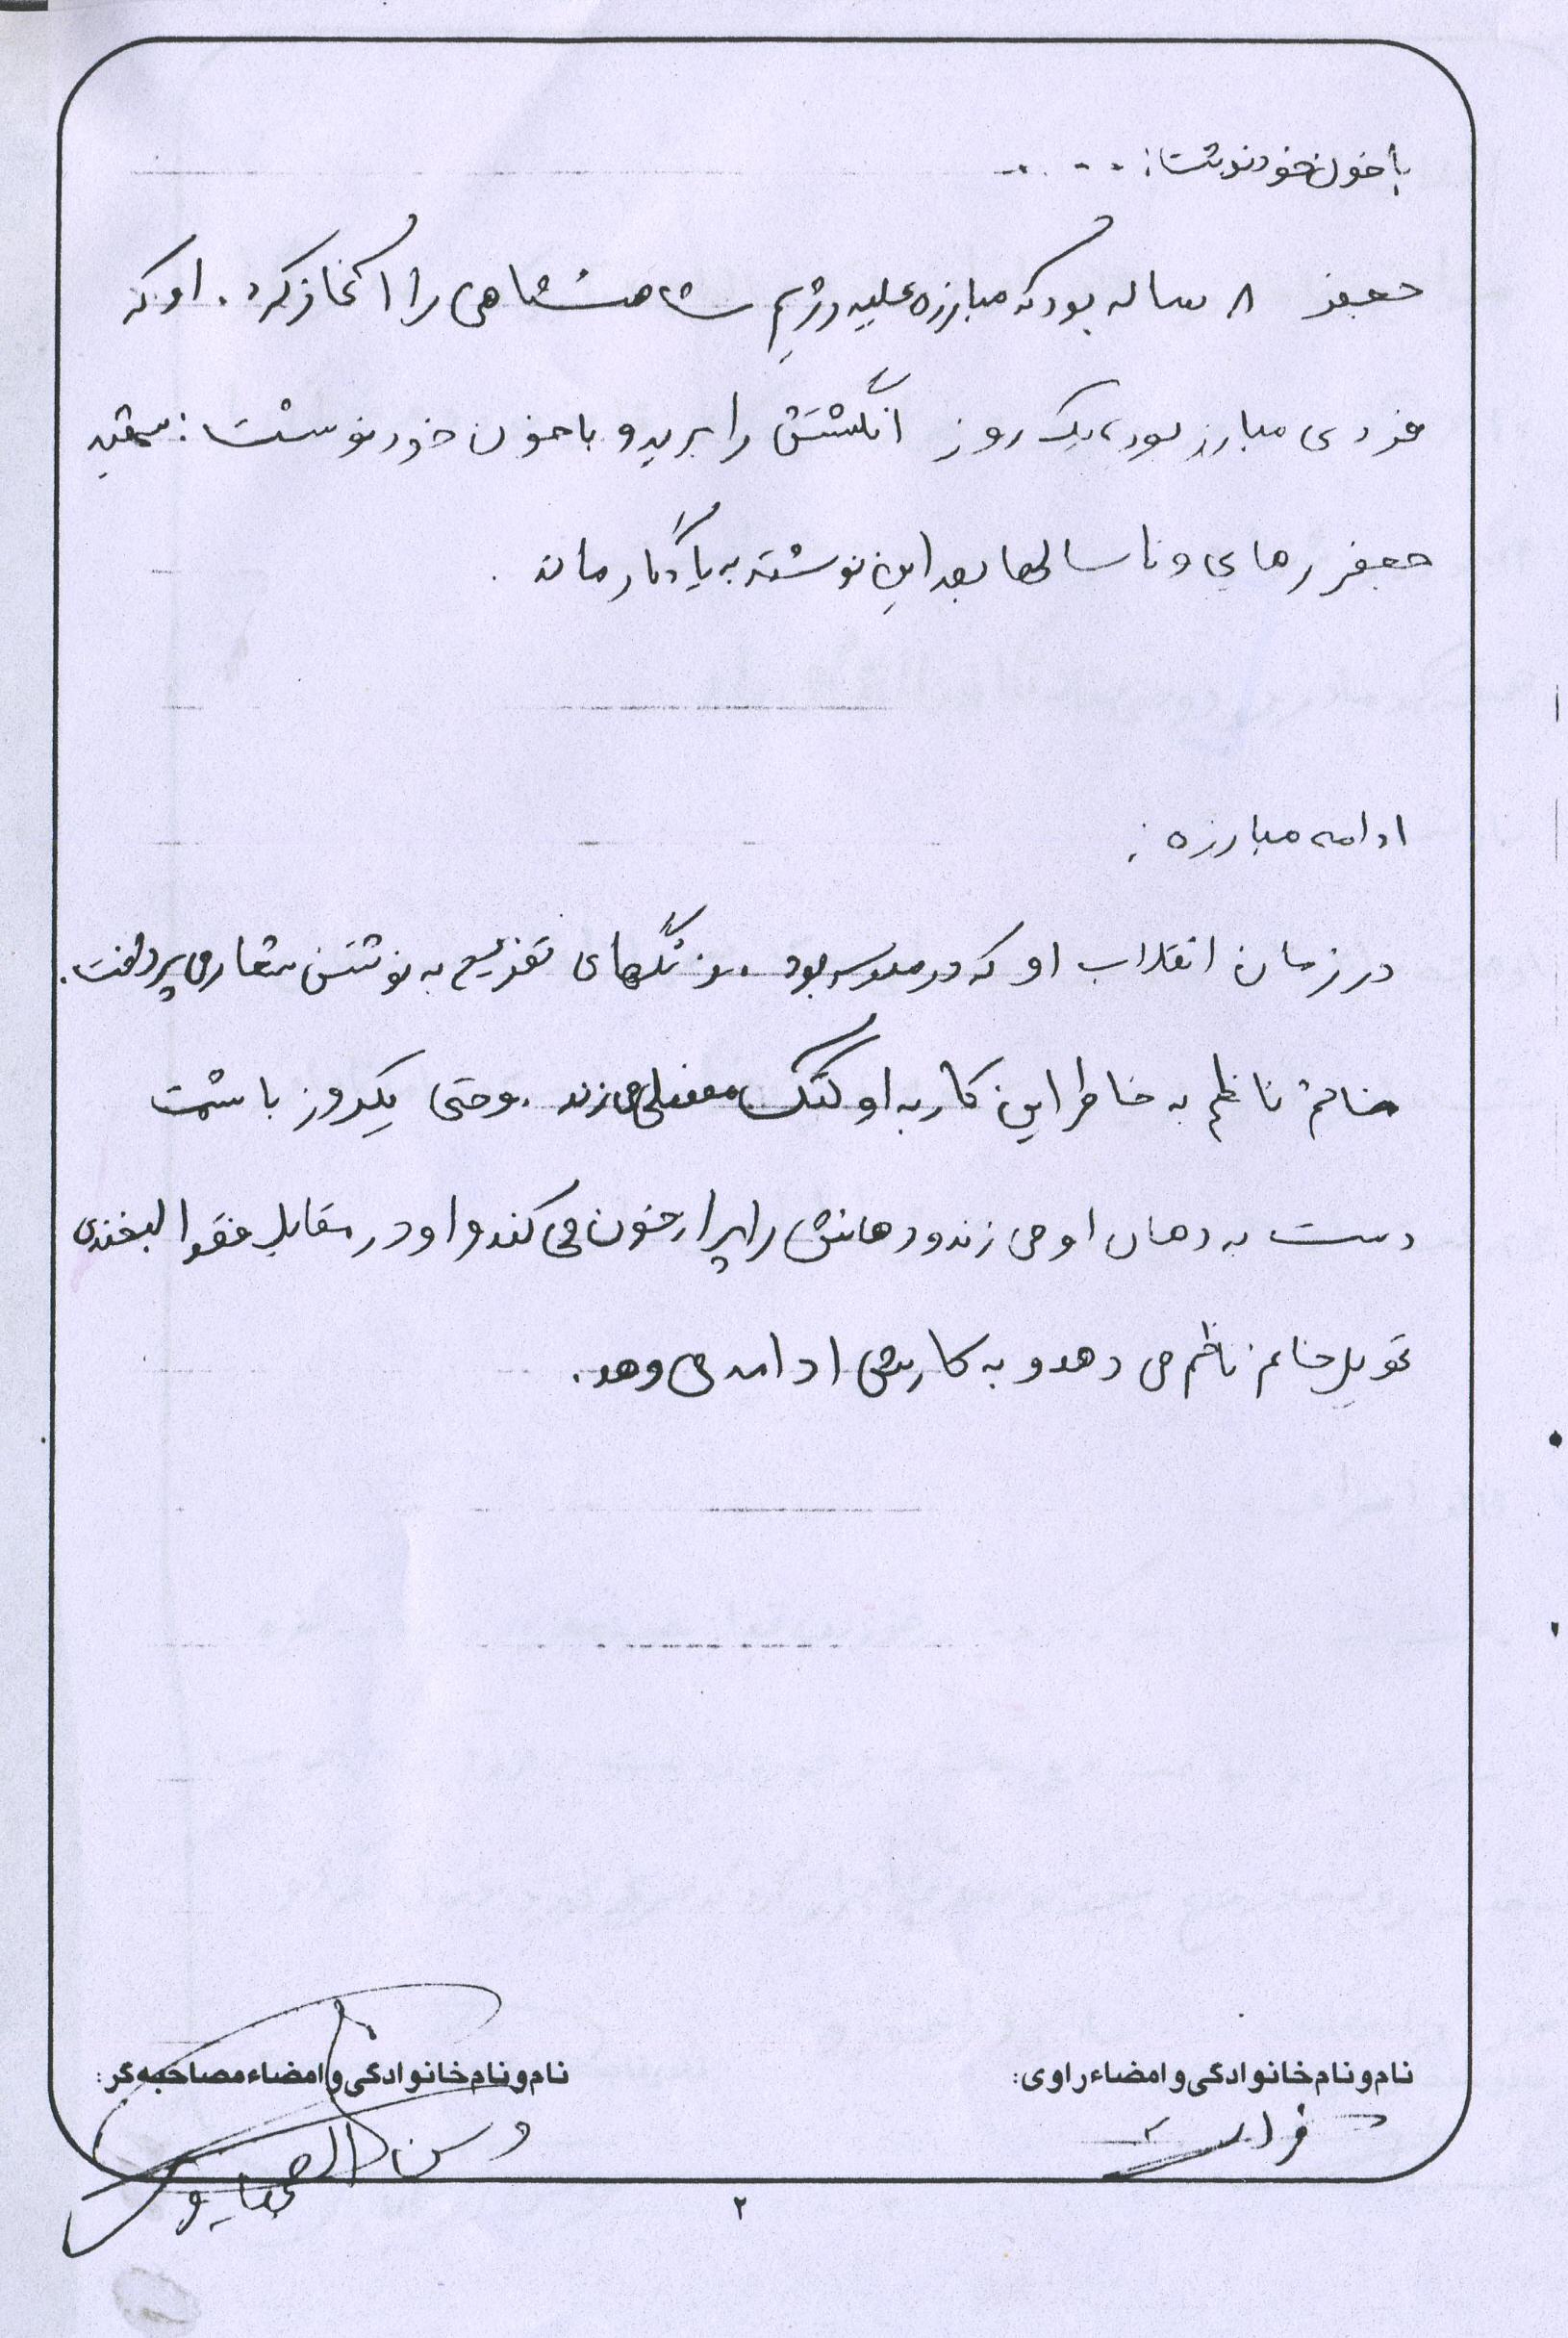 با خون خود نوشت: ....
جعفر ۸ ساله بود که مبارزه علیه رژیم شاهنشاهی را آغاز کرد. او که
فردی مبارز بود، یک روز انگشتش را برید و با خون خود نوشت: شهید
جعفر رهایی و تا سالها بعد این نوشته به یادگار ماند.
ادامه مبارزه:
در زمان انقلاب او که در مدرسه بود. زنگهای تفریح به نوشتن شعار می پرداخت.
خانم ناظم به خاطر این کار به او کتک مفصلی می زند. و حتی یکروز با پشت
دست به دهان او می زند و دهانش را پر از خون می کند و او در مقابل فقط لبخندی
تحویل خانم ناظم می دهد و به کارش ادامه می دهد.
نام و نام خانوادگی و امضاء راوی:
نام و نام خانوادگی و امضاء مصاحبه گر:
۲